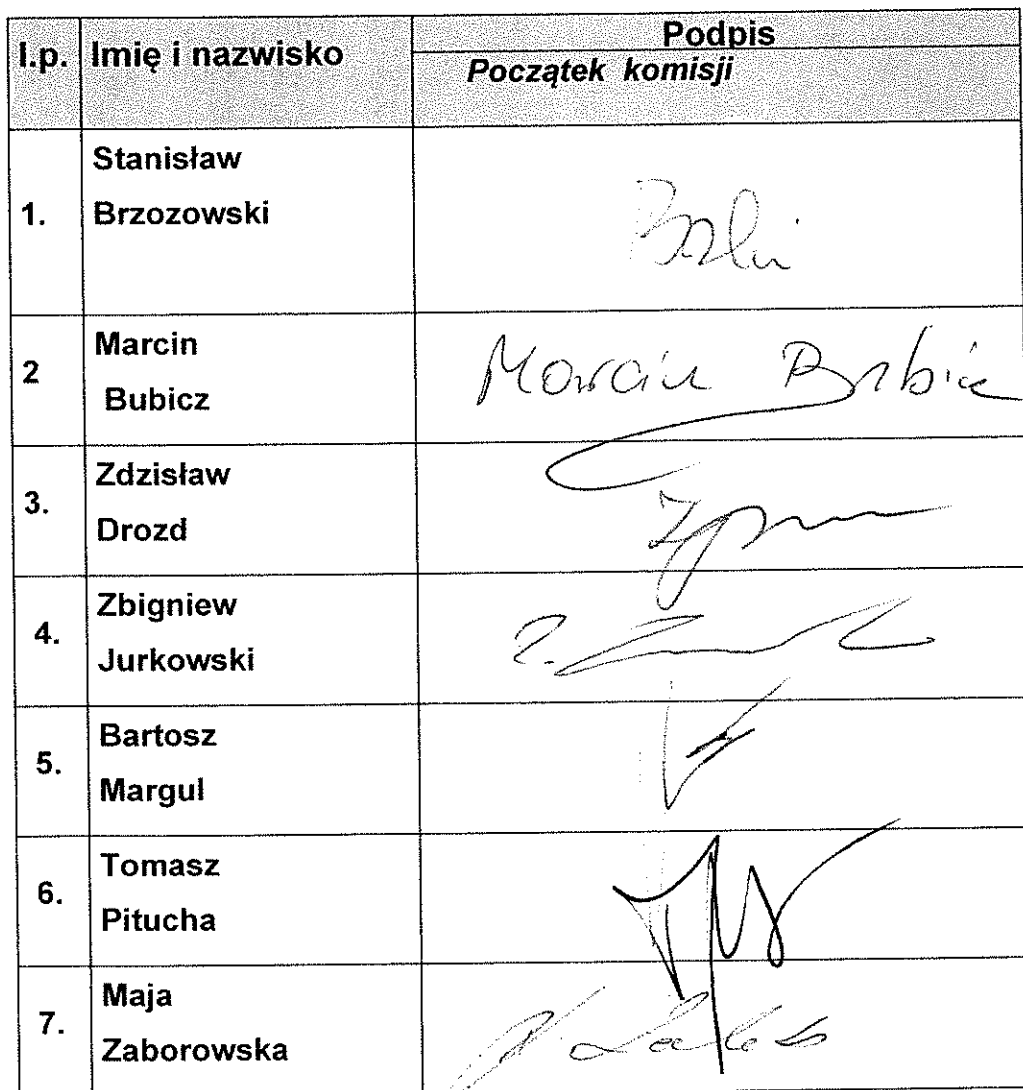 l.p. Imię i nazwisko Podpis
Początek komisji
1. Stanisław
Brzozowski
2 Marcin
Bubicz Marcin Bubicz
3. Zdzisław
Drozd
4. Zbigniew
Jurkowski
5. Bartosz
Margul
6. Tomasz
Pitucha
7. Maja
Zaborowska